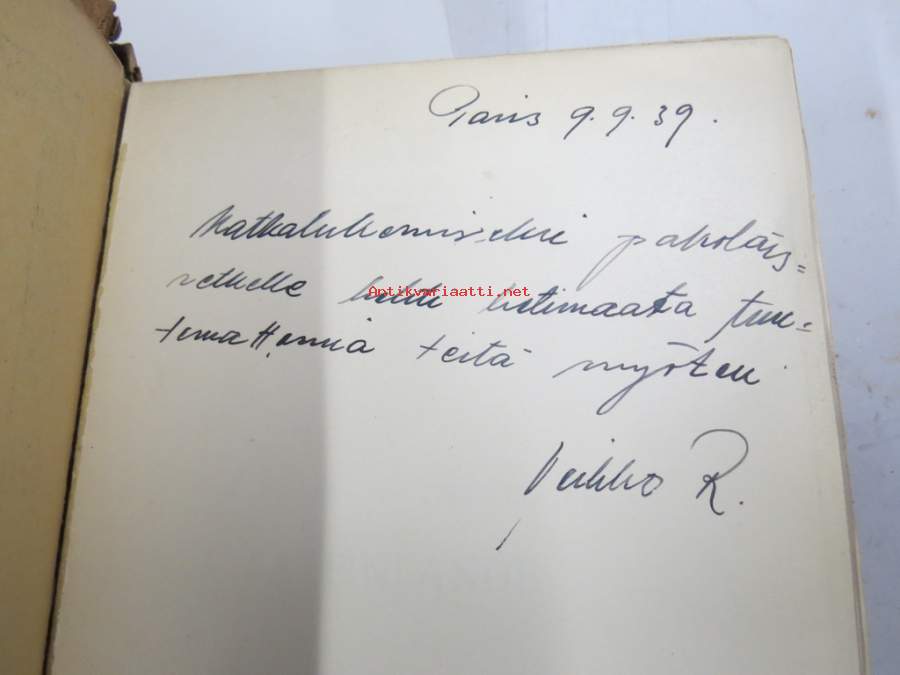 Paris 9.9.39.
Matkalukemiseksi pakoläis=
retkelle kohti kotimaata tun=
temattomia teitä myöten
Veikko R.
Antikvariaatti.net